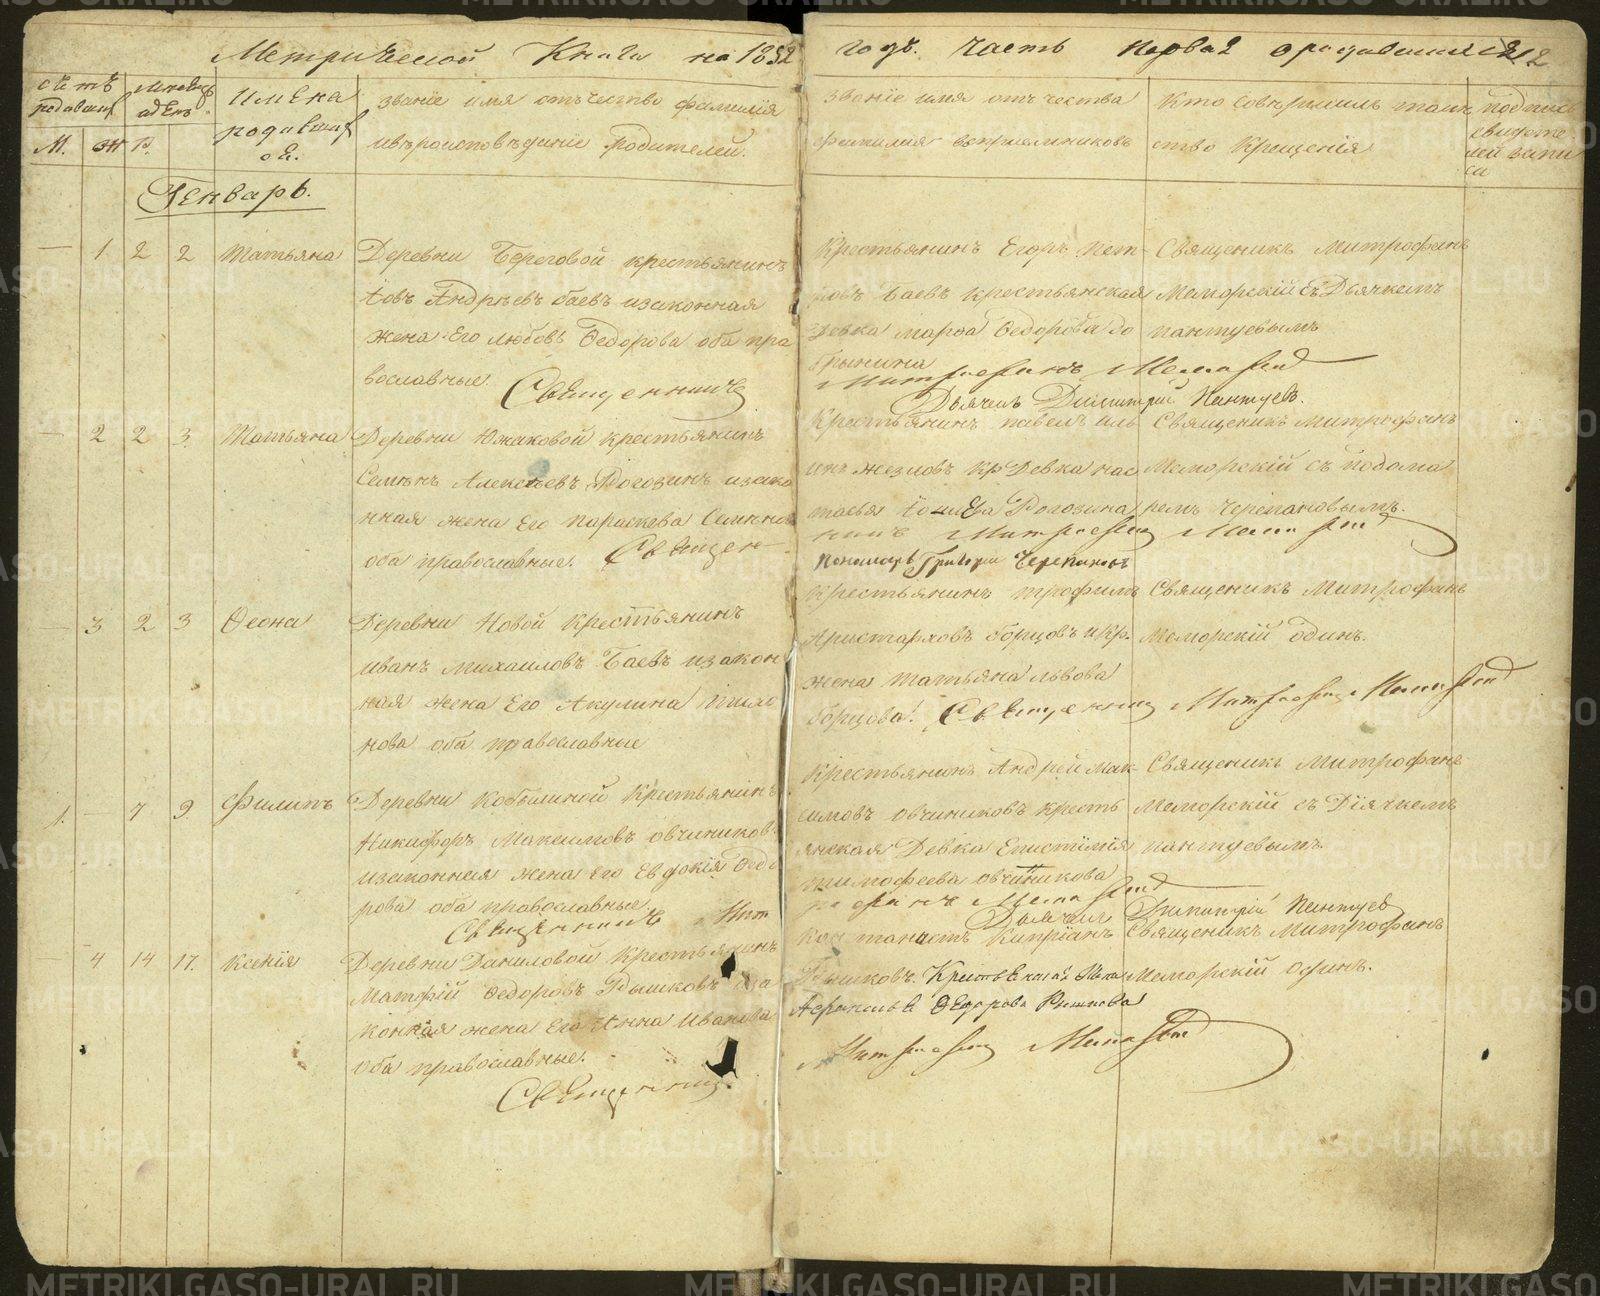 Метрической Книги на 1852 годъ. часть первая о родившихся 2
счетъ родившихся
М. Ж.
Месяцъ и день
Р.
имена родившихся
званіе имя отъчество фамилія
и вѣроисповѣданіе родителей.
званіе имя отъчества
фамилия воспріемниковъ
кто совершилъ таин
ство Крещенія
подпись
свидете
лей запи
си
Генварь.
— 1 2 2 Татьяна
Деревни Береговой крестьянинъ
Іовъ Андреевъ баевъ и законная
жена Его любовь Федорова оба пра
вославные. Священникъ
Крестьянинъ Егоръ пет-
ровъ баевъ крестьянская
Девка марфа Федорова до
брынина
Священикъ Митрофанъ
Меморскій съ Дьячкемъ
пантуевымъ
Митрофанъ Меморскій
Дьячекъ Димитрій Пантуевъ.
— 2 2 3 Татьяна
Деревни Южаковой крестьянинъ
Семенъ Алексеевъ Рогозинъ и зако
нная жена Его параскева Семенова
оба православные. Священ-
Крестьянинъ павелъ иль
инъ жезловъ кр Девка нас
тасья Рогозина
Священикъ Митрофанъ
Меморскій съ подома
ремъ Черепановымъ.
никъ Митрофанъ Меморскій
Пономарь Григорій Черепановъ
— 3 2 3 Феона
Деревни Новой Крестьянинъ
иванъ михаиловъ Баевъ и закон
ная жена Его Акулина
нова оба православные
Крестьянинъ трофимъ
Аристарховъ борцовъ и кр.
жена татьяна львова
борцова. Священникъ Митрофанъ Меморскій
Священикъ Митрофанъ
Меморскій одинъ.
1. — 7 9 Филипъ
Деревни Кобылиной Крестьянинъ
Никифоръ Максимовъ овчиниковъ
и законная жена Его Евдокія Федо
рова оба православные.
Священникъ Мит
Крестьянинъ Андрей мак
симовъ овчиниковъ кресть
янская Девка Епистимія
тимофеева овчиникова
Священикъ Митрофанъ
Меморскій съ Діячкемъ
пантуевымъ
рофанъ Меморскій
Дьячекъ Димитрій Пантуевъ
— 4 14 17. Ксенія
Деревни Даниловой Крестьянинъ
Матфій Федоровъ Рышковъ и за
конная жена Его Анна Иванова
оба православные.
Священникъ
Кантонистъ Кипріянъ
Рышковъ. Крестьянская
Федорова Рышкова
Священикъ Митрофанъ
Меморскій одинъ.
Митрофанъ Меморскій
METRIKI.GASO-URAL.RU